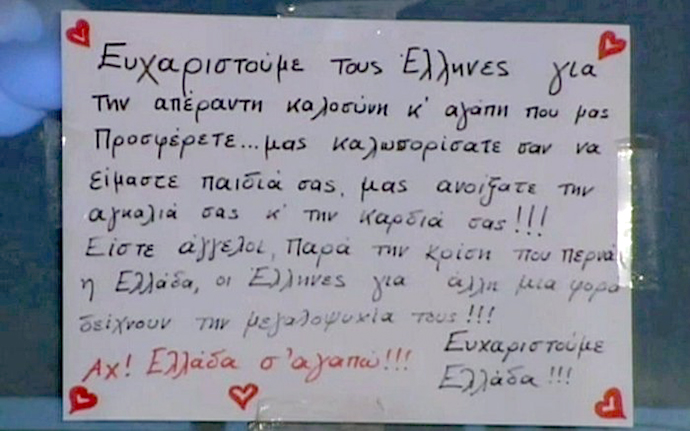 Ευχαριστούμε τους Έλληνες για
την απέραντη καλοσύνη κ' αγάπη που μας
Προσφέρετε... μας καλωσορίσατε σαν να
είμαστε παιδιά σας, μας ανοίξατε την
αγκαλιά σας κ' την καρδιά σας!!!
Είστε άγγελοι, Παρά την κρίση που περνά
η Ελλάδα, οι Έλληνες για άλλη μια φορά
δείχνουν την μεγαλοψυχία τους!!!
Αχ! Ελλάδα σ'αγαπώ!!!
Ευχαριστούμε
Ελλάδα!!!